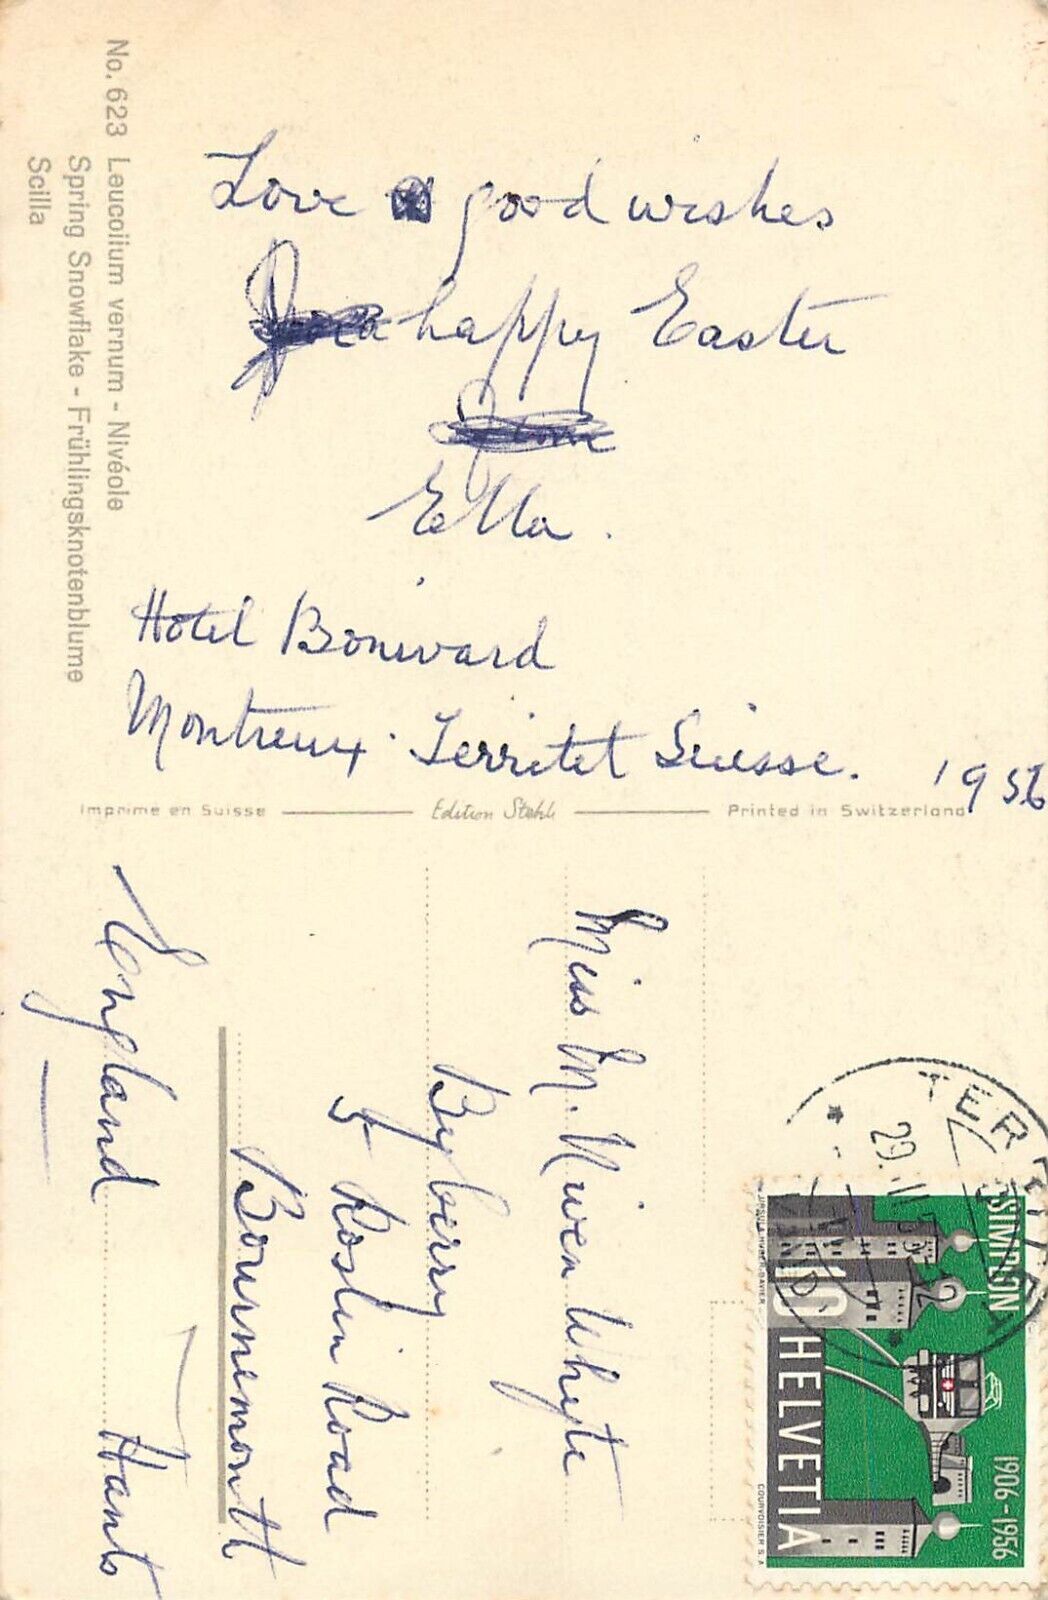 No. 623 Leucoiium vernum - Nivéole
Spring Snowflake - Frühlingsknotenblume
Scilla
Love & good wishes
happy Easter
Ella.
Hotel Bonivard
Montreux. Territet Suisse. 1956
Imprimé en Suisse
Edition Stehli
Printed in Switzerland
Miss M. Niven Whyte
Byberry
Roslin Road
Bournemouth
Hants
England
TERRITET
SIMPLON
1906-1956
10 HELVETIA
COURVOISIER S.A.